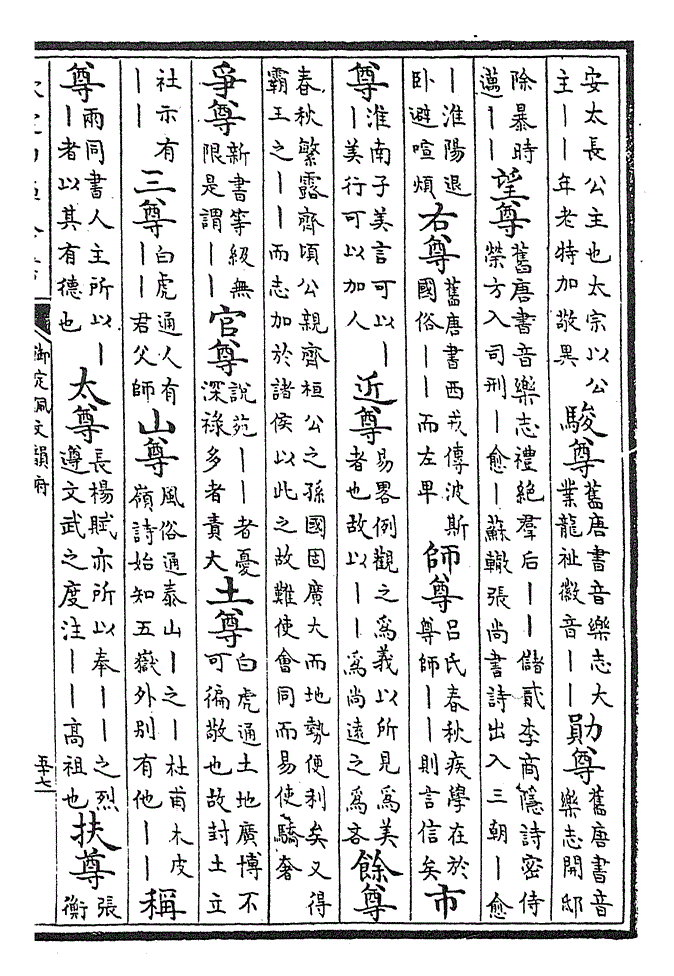 安太長公主也太宗以公主||年老特加敬異 駿尊 舊唐書音樂志大業龍祉徽音|| 勛尊 舊唐書音樂志開邸
除暴時邁|| 望尊 舊唐書音樂志禮絶羣后||儲貳李商隱詩密侍榮方入司刑|愈|蘇轍張尚書詩出入三朝|愈
|淮陽退卧避喧煩 右尊 舊唐書西戎傳波斯國俗||而左卑 師尊 吕氏春秋疾學在於尊師||則言信矣 市
尊 淮南子美言可以||美行可以加人 近尊 易畧例觀之爲義以所見爲美者也故以||爲尚遠之爲吝 餘尊
春秋繁露齊頃公親齊桓公之孫國固廣大而地勢便利矣又得霸王之||而志加於諸侯以此之故難使會同而易使驕奢
爭尊 新書等級無限是謂|| 官尊 說苑||者憂深祿多者責大 土尊 白虎通土地廣博不可徧敬也故封土立
社示有|| 三尊 白虎通人有||君父師 山尊 風俗通泰山|之|杜甫木皮嶺詩始知五嶽外别有他|| 稱
尊 兩同書人主所以||者以其有德也 太尊 長楊賦亦所以奉||之烈遵文武之度注||高祖也 扶尊 張衡
御定佩文韻府
五十七